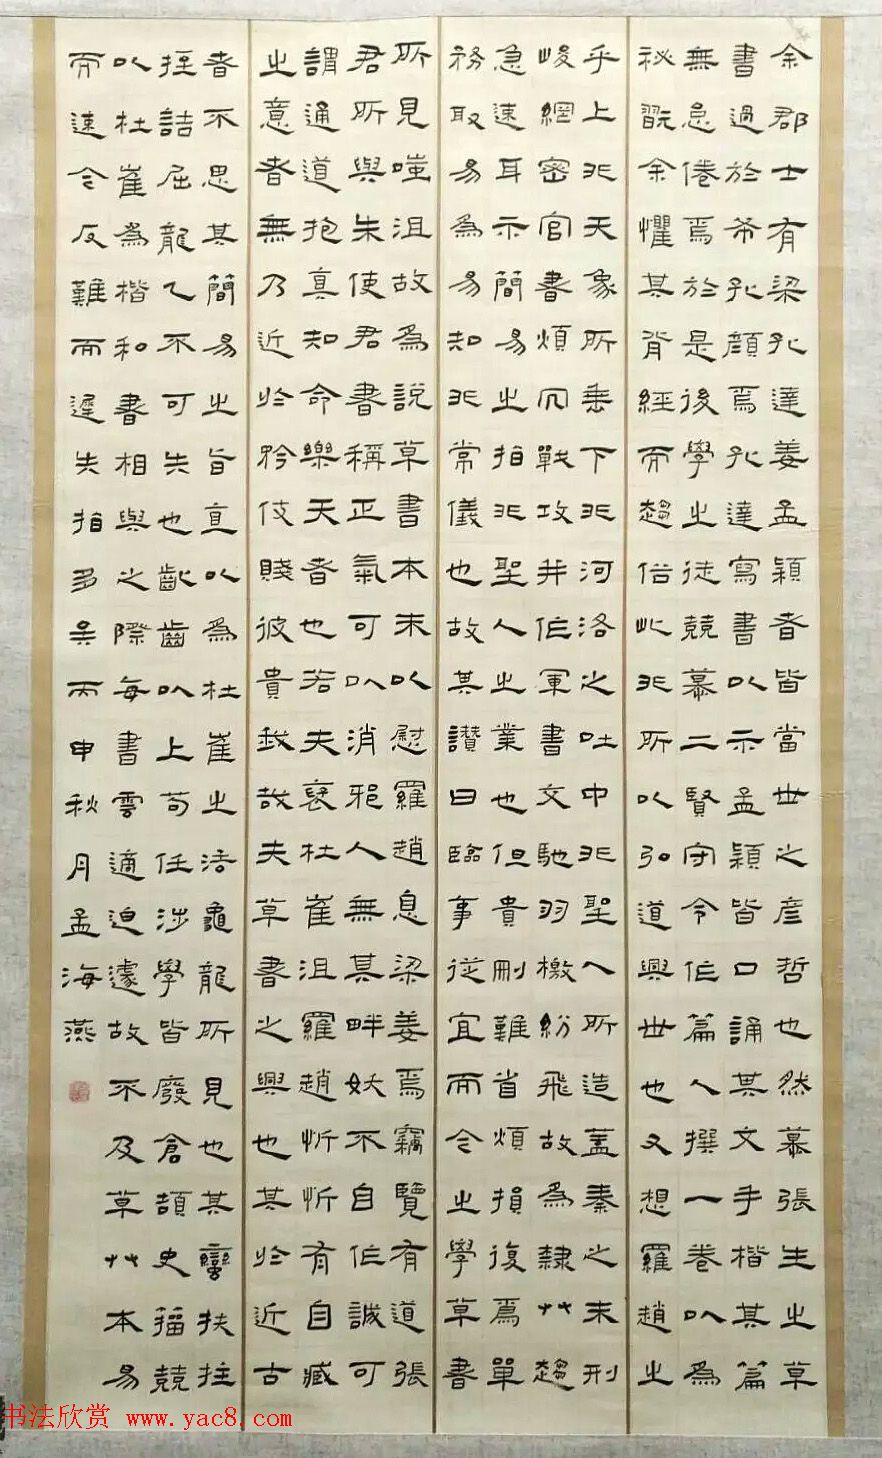 余郡士有梁孔達姜孟穎者皆當世之彦哲也然慕張生之草
書過於希孔顏焉孔達寫書以示孟穎皆口誦其文手楷其篇
無怠倦焉於是後學之徒競慕二賢守令作篇人撰一卷以為
秘翫余懼其背經而趨俗此非所以弘道興世也又想羅趙之
乎上非天象所垂下非河洛之吐中非聖人所造蓋秦之末刑
峻網密官書煩冗戰攻并作軍書文馳羽檄紛飛故為隸艸趨
急速耳示簡易之指非聖人之業也但貴刪難省煩損復焉單
務取易為易知非常儀也故其讚曰臨事從宜而今之學草書
所見嗤沮故為說草書本末以慰羅趙息梁姜焉竊覽有道張
君所與朱使君書稱正氣可以消邪人無其畔妖不自作誠可
謂通道抱真知命樂天者也若夫襃杜崔沮羅趙忻忻有自臧
之意者無乃近於矜伎賤彼貴我哉夫草書之興也其於近古
者不思其簡易之旨直以為杜崔之法龜龍所見也其蠻扶拄
拄詰屈龍乙不可失也齔齒以上苟任涉學皆廢倉頡史籀競
以杜崔為楷和書相與之際每書雲適迫遽故不及草艸本易
而速今反難而遲失指多矣丙申秋月孟海燕
书法欣赏 www.yac8.com